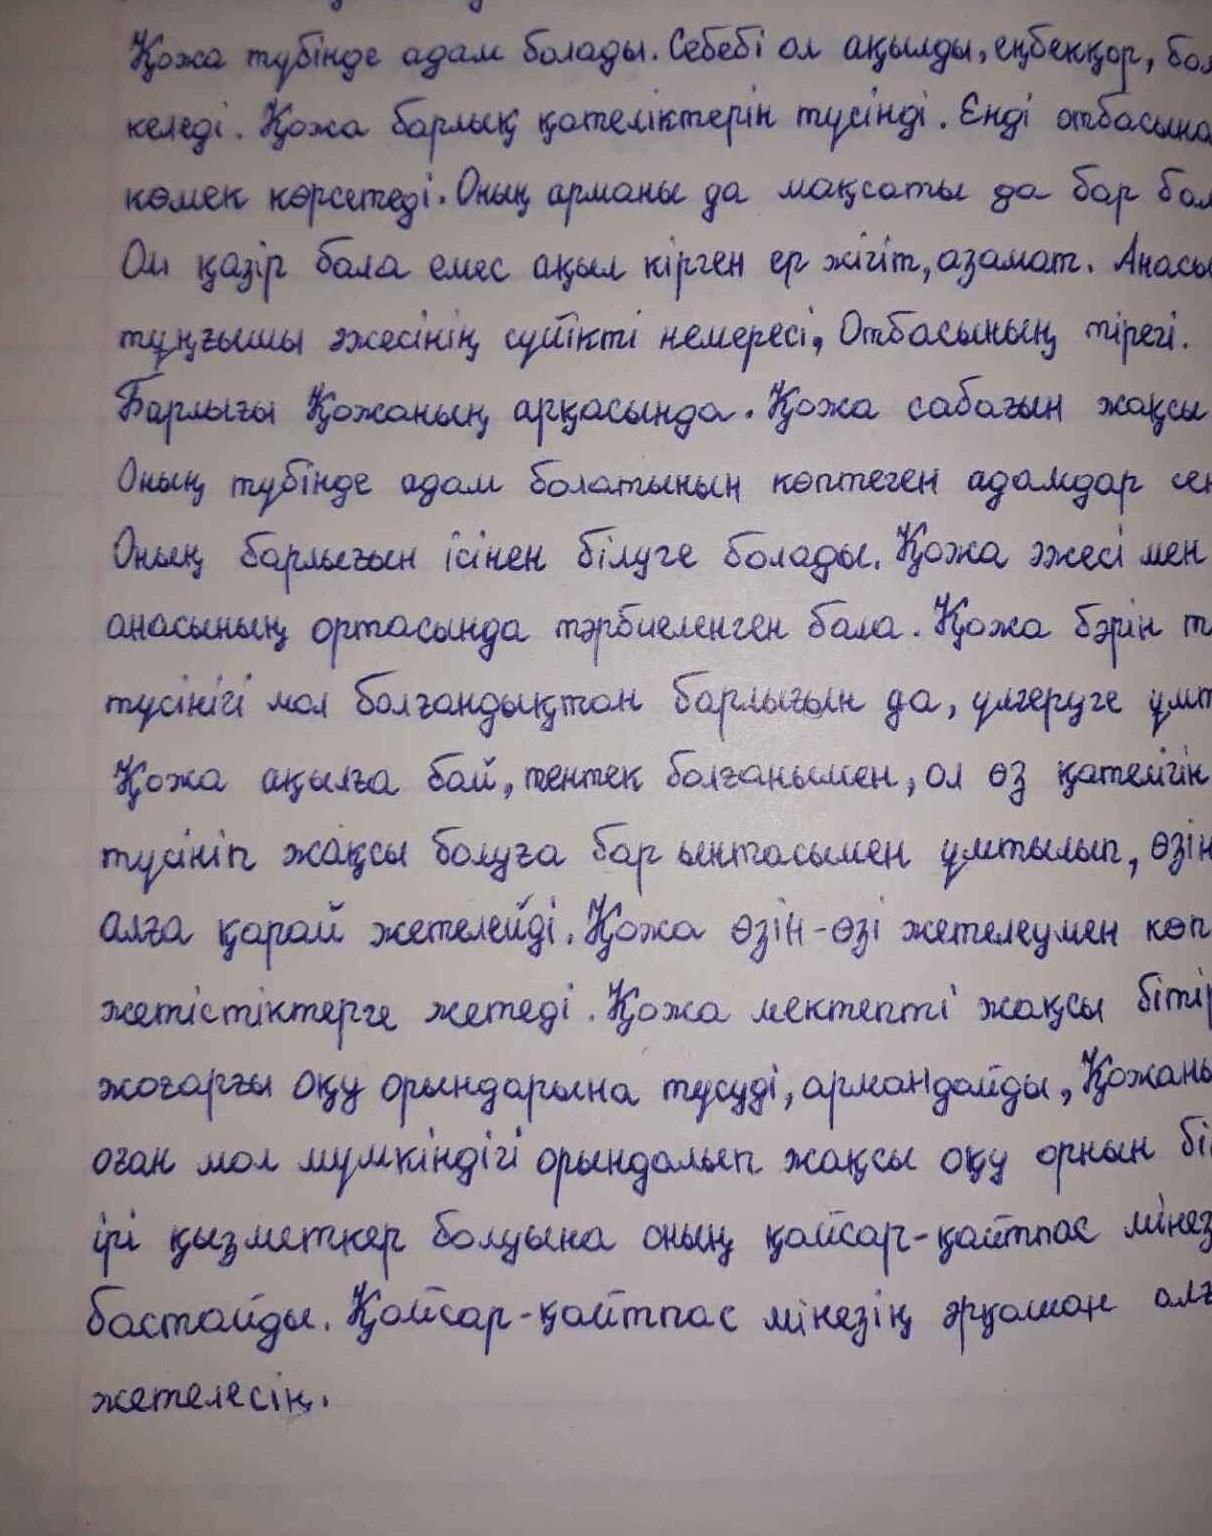 Қожа түбінде адам болады. Себебі ол ақылды, еңбекқор, бол
келеді. Қожа барлық қателіктерін түсінді. Енді отбасына
көмек көрсетеді. Оның арманы да мақсаты да бар бол
Ол қазір бала емес ақыл кірген ер жігіт, азамат. Анасы
тұңғышы әжесінің сүйікті немересі, Отбасының тірегі.
Барлығы Қожаның арқасында. Қожа сабағын жақсы
Оның түбінде адам болатынын көптеген адамдар сен
Оның барлығын ісінен білуге болады. Қожа әжесі мен
анасының ортасында тәрбиеленген бала. Қожа бәрін т
түсінігі мол болғандықтан барлығын да, үлгеруге ұмт
Қожа ақылға бай, тентек болғанымен, ол өз қателігін
түсініп жақсы болуға бар ынтасымен ұмтылып, өзін
алға қарай жетелейді. Қожа өзін-өзі жетелеумен көп
жетістіктерге жетеді. Қожа мектепті жақсы бітір
жоғарғы оқу орындарына түсуді, армандайды, Қожаны
оған мол мүмкіндігі орындалып жақсы оқу орнын бі
ірі қызметкер болуына оның қайсар-қайтпас мінез
бастайды. Қайсар-қайтпас мінезің әрқашан алғ
жетелесін.